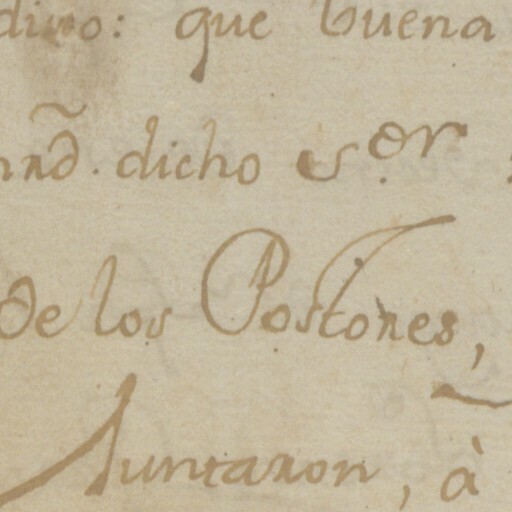 dino: que buena
dicho s.or
de los Postores,
Juntaron, à